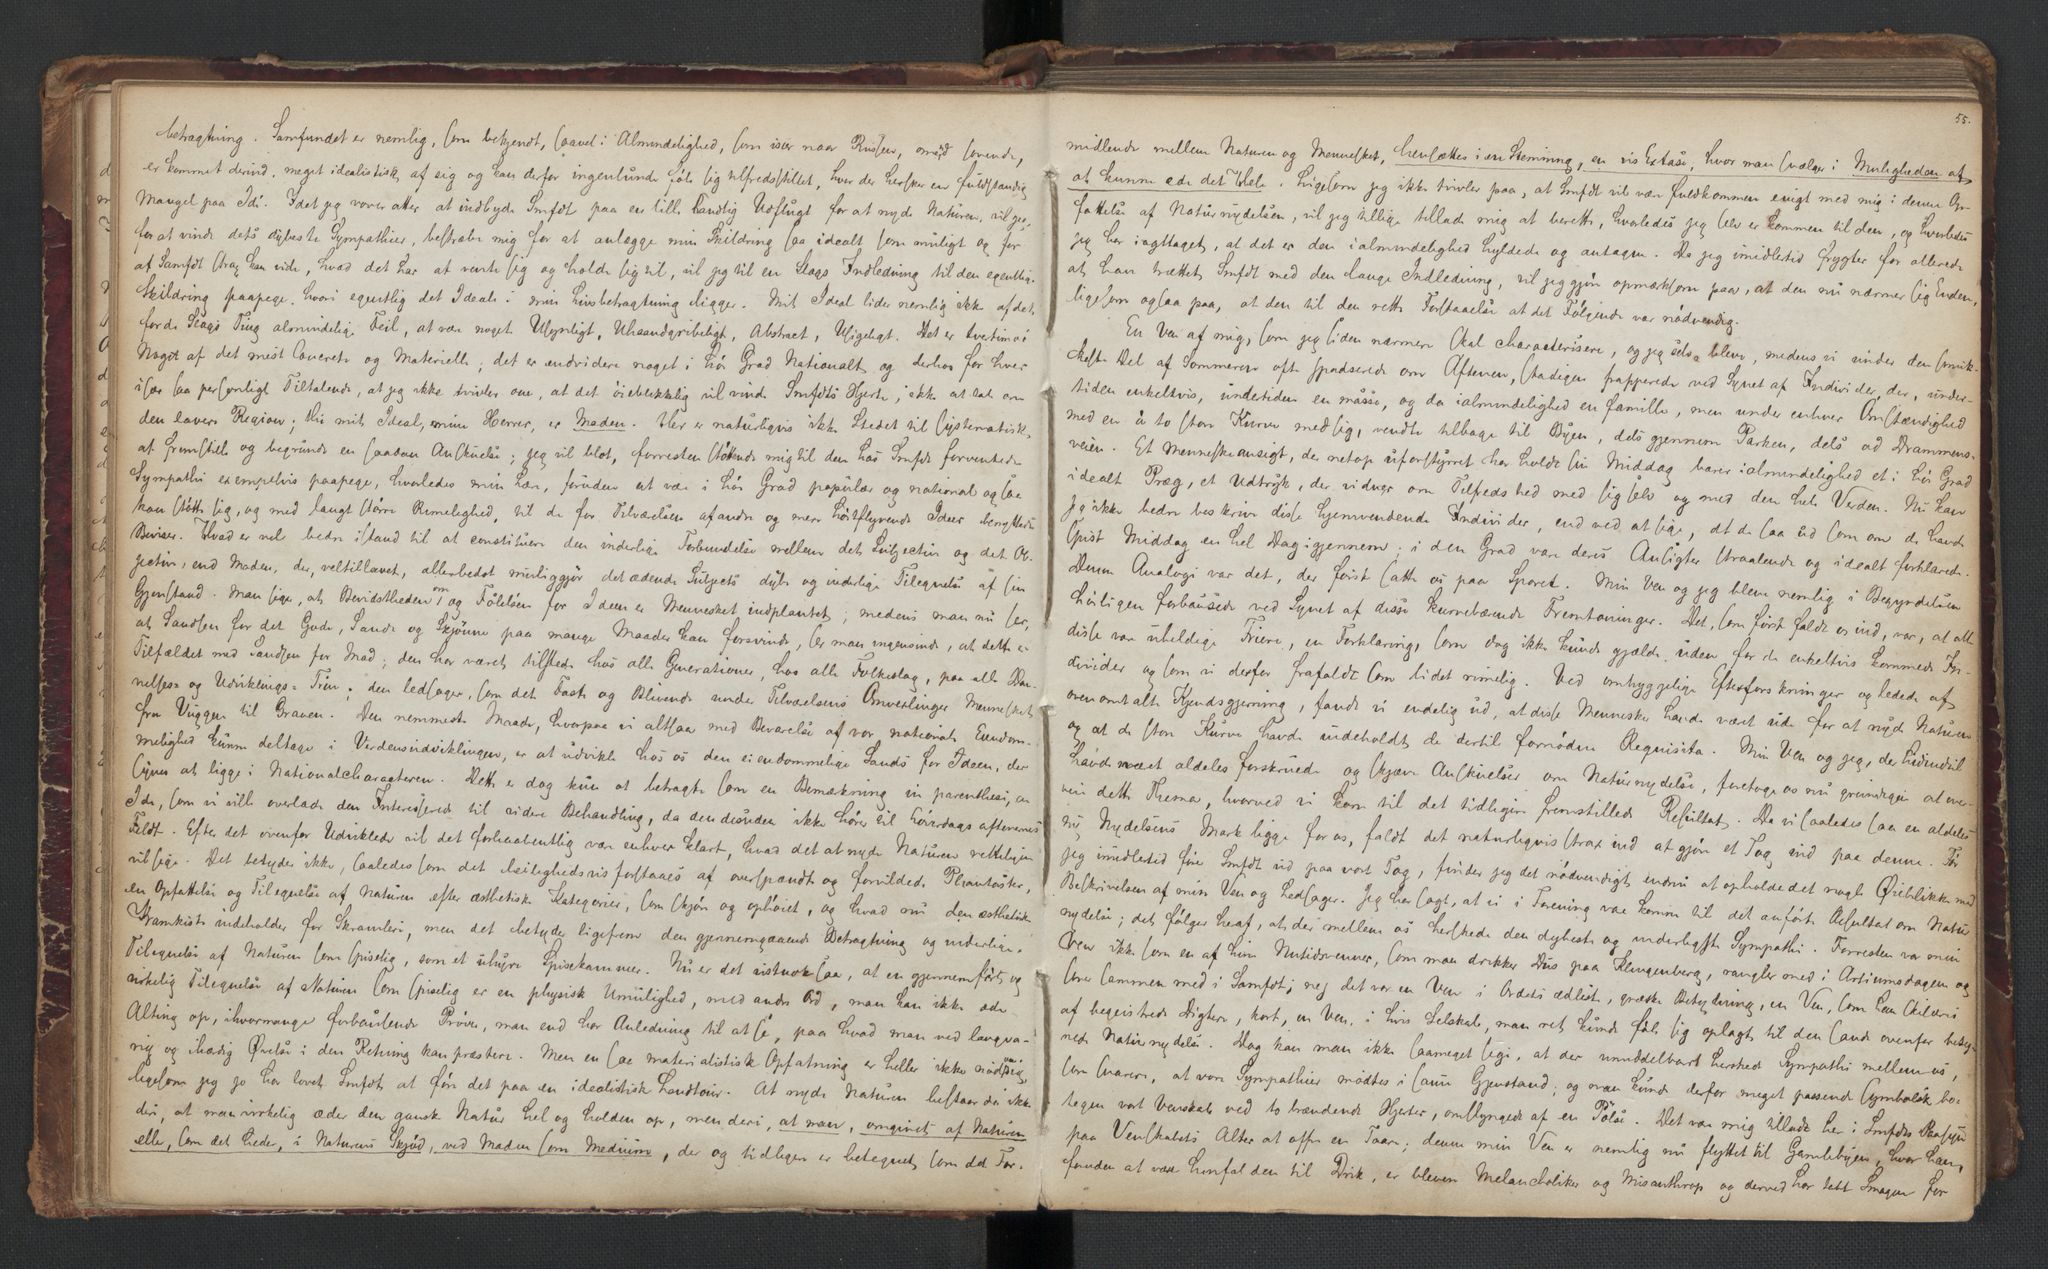 betragtning. Samfundet er nemlig, som bekjendt, saavel i Almindelighed, som især naar Russen, ovende,
er kommet derind, meget idealistisk af sig og kan derfor ingenlunde føle sig tilfredsstillet, hvor der hersker en fuldstændig
Mangel paa Idé. Idet jeg vover atter at indbyde Smfdt paa en lille landlig Udflugt for at nyde Naturen, vil jeg,
for at vinde dets dybeste Sympathier, bestræbe mig for at anlægge min Skildring saa idealt som muligt og for
at Samfdt strax kan vide, hvad det har at vente sig og holde sig til, vil jeg til en Slags Indledning til den egentlige
Skildring paapege, hvori egentlig det Ideale i min Livsbetragtning ligger. Mit Ideal lider nemlig ikke af det,
for de Slags Ting almindelige Feil, at være noget Usynligt, Uhaandgribeligt, Abstract, Usigeligt. Det er tvertimod
Noget af det mest Concrete og Materielle; det er endvidere noget i høi Grad Nationalt og derhos for hver
især saa personligt Tiltalende, at jeg ikke tvivler om, at det øieblikkelig vil vinde Smfdts Hjerte; ikke at tale om
den lavere Region; thi mit Ideal, mine Herrer, er Maden. Her er naturligvis ikke Stedet til systematisk
at fremstille og begrunde en saadan Anskuelse; jeg vil blot, forresten støttende mig til den hos Smfdt forventede
Sympathi exempelvis paapege, hvorledes min Lære, foruden at være i høi Grad populær og national ogsaa
kan støtte sig, og med langt større Rimelighed, til de for Tilværelsen af andre og mere høitflyvende Ideer benyttede
Beviser. Hvad er vel bedre istand til at constituere den inderlige Forbindelse mellem det Subjective og det Ob-
jective, end Maden, der, veltillavet, allerbedst muliggjør det ædende Subjects dybe og inderlige Tilegnelse af sin
Gjenstand. Man siger, at Bevidstheden om og Følelsen for Ideen er Mennesket indplantet; medens man nu ser,
at Sandsen for det Gode, Sande og Skjønne paa mange Maader kan forsvinde, ser man ingensinde, at dette er
Tilfældet med Sandsen for Mad; den har været tilstede hos alle Generationer, hos alle Folkeslag, paa alle Dan-
nelses- og Udviklings-Trin; den ledsager, som det Faste og Blivende under Tilværelsens Omvexlinger Mennesket
fra Vuggen til Graven. Den nemmeste Maade, hvorpaa vi altsaa med Bevarelse af vor nationale Eiendom-
melighed kunne deltage i Verdensudviklingen, er at udvikle hos os den eiendommelige Sands for Ideen, der
synes at ligge i Nationalcharacteren. Dette er dog kun at betragte som en Bemærkning in parenthesi, en
Ide, som vi ville overlade den Interesserede til videre Behandling, da den desuden ikke hører til Løverdagsaftenernes
Feldt. Efter det ovenfor Udviklede vil det forhaabentlig være enhver klart, hvad det at nyde Naturen rettelig
vil sige. Det betyder ikke, saaledes som det leilighedsvis forstaaes af overspændte og forvildede Phantaster,
en Opfattelse og Tilegnelse af Naturen efter æsthetiske Kategorier, som skjøn og ophøiet, og hvad nu den æsthetiske
Kramkiste indeholder for Skramleri, men det betyder ligefrem den gjennemgaaende Betragtning og inderlige
Tilegnelse af Naturen som spiselig, som et uhyre Spisekammer. Nu er det vistnok saa, at en gjennemført og
virkelig Tilegnelse af Naturen som spiselig er en physisk Umulighed, med andre Ord, man kan ikke æde
Alting op, ihvormange forbausende Prøver, man end har Anledning til at se, paa hvad man ved langva-
rig og ihærdig Øvelse i den Retning kan præstere. Men en saa materialistisk Opfatning er heller ikke nødvendig,
ligesom jeg jo har lovet Smfdt at føre det paa en idealistisk Landtour. At nyde Naturen bestaar da ikke
deri, at man virkelig æder den ganske Natur hel og holden op, men deri, at man, omgivet af Naturen
eller, som det heder, i Naturens Skjød, ved Maden som Medium, der og tidligere er betegnet som det For-
55.
midlende mellem Naturen og Mennesket, hensættes i en Stemning, en vis Extase, hvor man svælger i Muligheden af
at kunne æde det Hele. Ligesom jeg ikke tvivler paa, at Smfdt vil være fuldkommen enigt med mig i denne Op-
fattelse af Naturnydelsen, vil jeg tillige tillade mig at berette, hvorledes jeg selv er kommen til den, og hvorledes
jeg har iagttaget, at det er den i almindelighed hyldede og antagne. Da jeg imidlertid frygter for allerede
at have trættet Smfdt med den lange Indledning, vil jeg gjøre opmærksom paa, at den nu nærmer sig Enden,
ligesom ogsaa paa, at den til den rette Forstaaelse af det Følgende var nødvendig.
En Ven af mig, som jeg siden nærmere skal characterisere, og jeg selv bleve, medens vi under den smuk-
keste Del af Sommeren ofte spadserede om Aftenen, stadigen frapperede ved Synet af Individer, der, under-
tiden enkeltvis, undertiden en masse, og da i almindelighed en famille, men under enhver Omstændighed
med en à to store Kurve med sig, vendte tilbage til Byen, dels gjennem Parken, dels ad Drammens-
veien. Et Menneskeansigt, der netop uforstyrret har holdt sin Middag bærer i almindelighed et i høi Grad
idealt Præg, et Udtryk, der vidner om Tilfredshed med sig selv og med den hele Verden. Nu kan
jeg ikke bedre beskrive disse hjemvendende Individer, end ved at sige, at de saa ud som om de havde
spist Middag en hel Dag igjennem; i den Grad vare deres Ansigter straalende og idealt forklarede.
Denne Analogi var det, der først satte os paa Sporet. Min Ven og jeg bleve nemlig i Begyndelsen
høiligen forbausede ved Synet af disse kurvebærende Fremtoninger. Det, som først faldt os ind, var, at alle
disse vare uheldige Friere, en Forklaring, som dog ikke kunde gjælde uden for de enkeltvis kommende In-
divider og som vi derfor frafaldt som lidet rimelig. Ved omhyggelige Efterforskninger og ledede af
ovenomtalte Kjendsgjerning, fandt vi endelig ud, at disse Mennesker havde været ude for at nyde Naturen
og at de store Kurve havde indeholdt de dertil fornødne Requisita. Min Ven og jeg, der hidindtil
havde næret aldeles forskruede og skjæve Anskuelser om Naturnydelse, foretoge os nu grundigen at over-
veie dette Thema, hvorved vi kom til det tidligere fremstillede Resultat. Da vi saaledes saa en aldeles
ny Nydelsens Mark ligge for os, faldt det naturligvis strax ind at gjøre et Tog ind paa denne. Før
jeg imidlertid fører Smfdt ud paa vort Tog, finder jeg det nødvendigt endnu at opholde det nogle Øieblikke med
Beskrivelsen af min Ven og Ledsager. Jeg har sagt, at vi i Forening vare komne til det anførte Resultat om Natur
nydelse; det følger heraf, at der mellem os herskede den dybeste og inderligste Sympathi. Forresten var min
Ven ikke som en af hine Nutidsvenner, som man drikker Dus paa Klingenberg, rangler med i Artiumsdagene og
sover sammen med i Samfdt; nej det var en Ven i Ordets ædleste, græske Betydning, en Ven, som kan skildres
af begeistrede Digtere, kort, en Ven, i hvis Selskab, man ret kunde føle sig oplagt til den sande ovenfor beteg-
nede Naturnydelse. Dog kan man ikke saameget sige, at der umiddelbart herskede Sympathi mellem os,
som snarere, at vore Sympathier mødtes i samme Gjenstand; og man kunde derfor meget passende symbolsk be-
tegne vort Venskab ved to brændende Hjerter, omslyngede af en Pølse. Det være mig tilladt her i Smfdts Paasyn
paa Venskabets Alter at offre en Taare; denne min Ven er nemlig nu flyttet til Gamlebyen, hvor han,
foruden at være henfalden til Drik, er bleven Melancholiker og Misanthrop og derved har tabt Smagen for